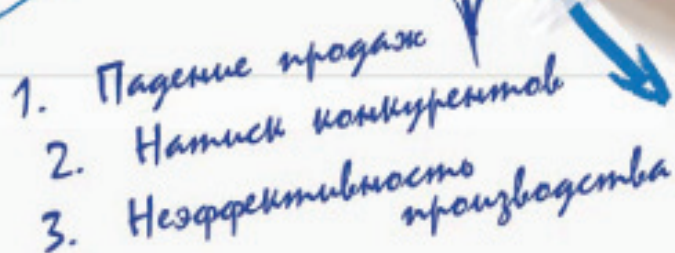 1. Падение продаж
2. Натиск конкурентов
3. Неэффективность
производства